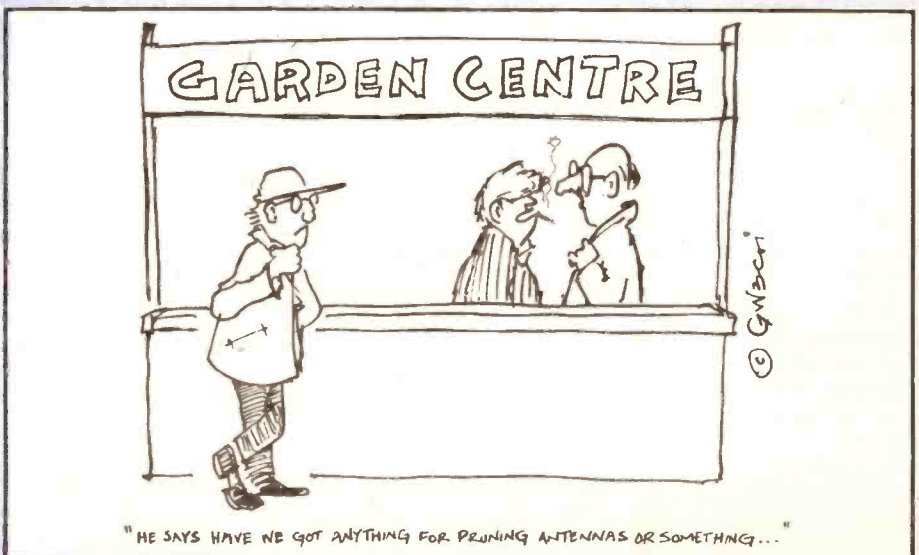 GARDEN CENTRE
© GW3CRI
"HE SAYS HAVE WE GOT ANYTHING FOR PRUNING ANTENNAS OR SOMETHING..."